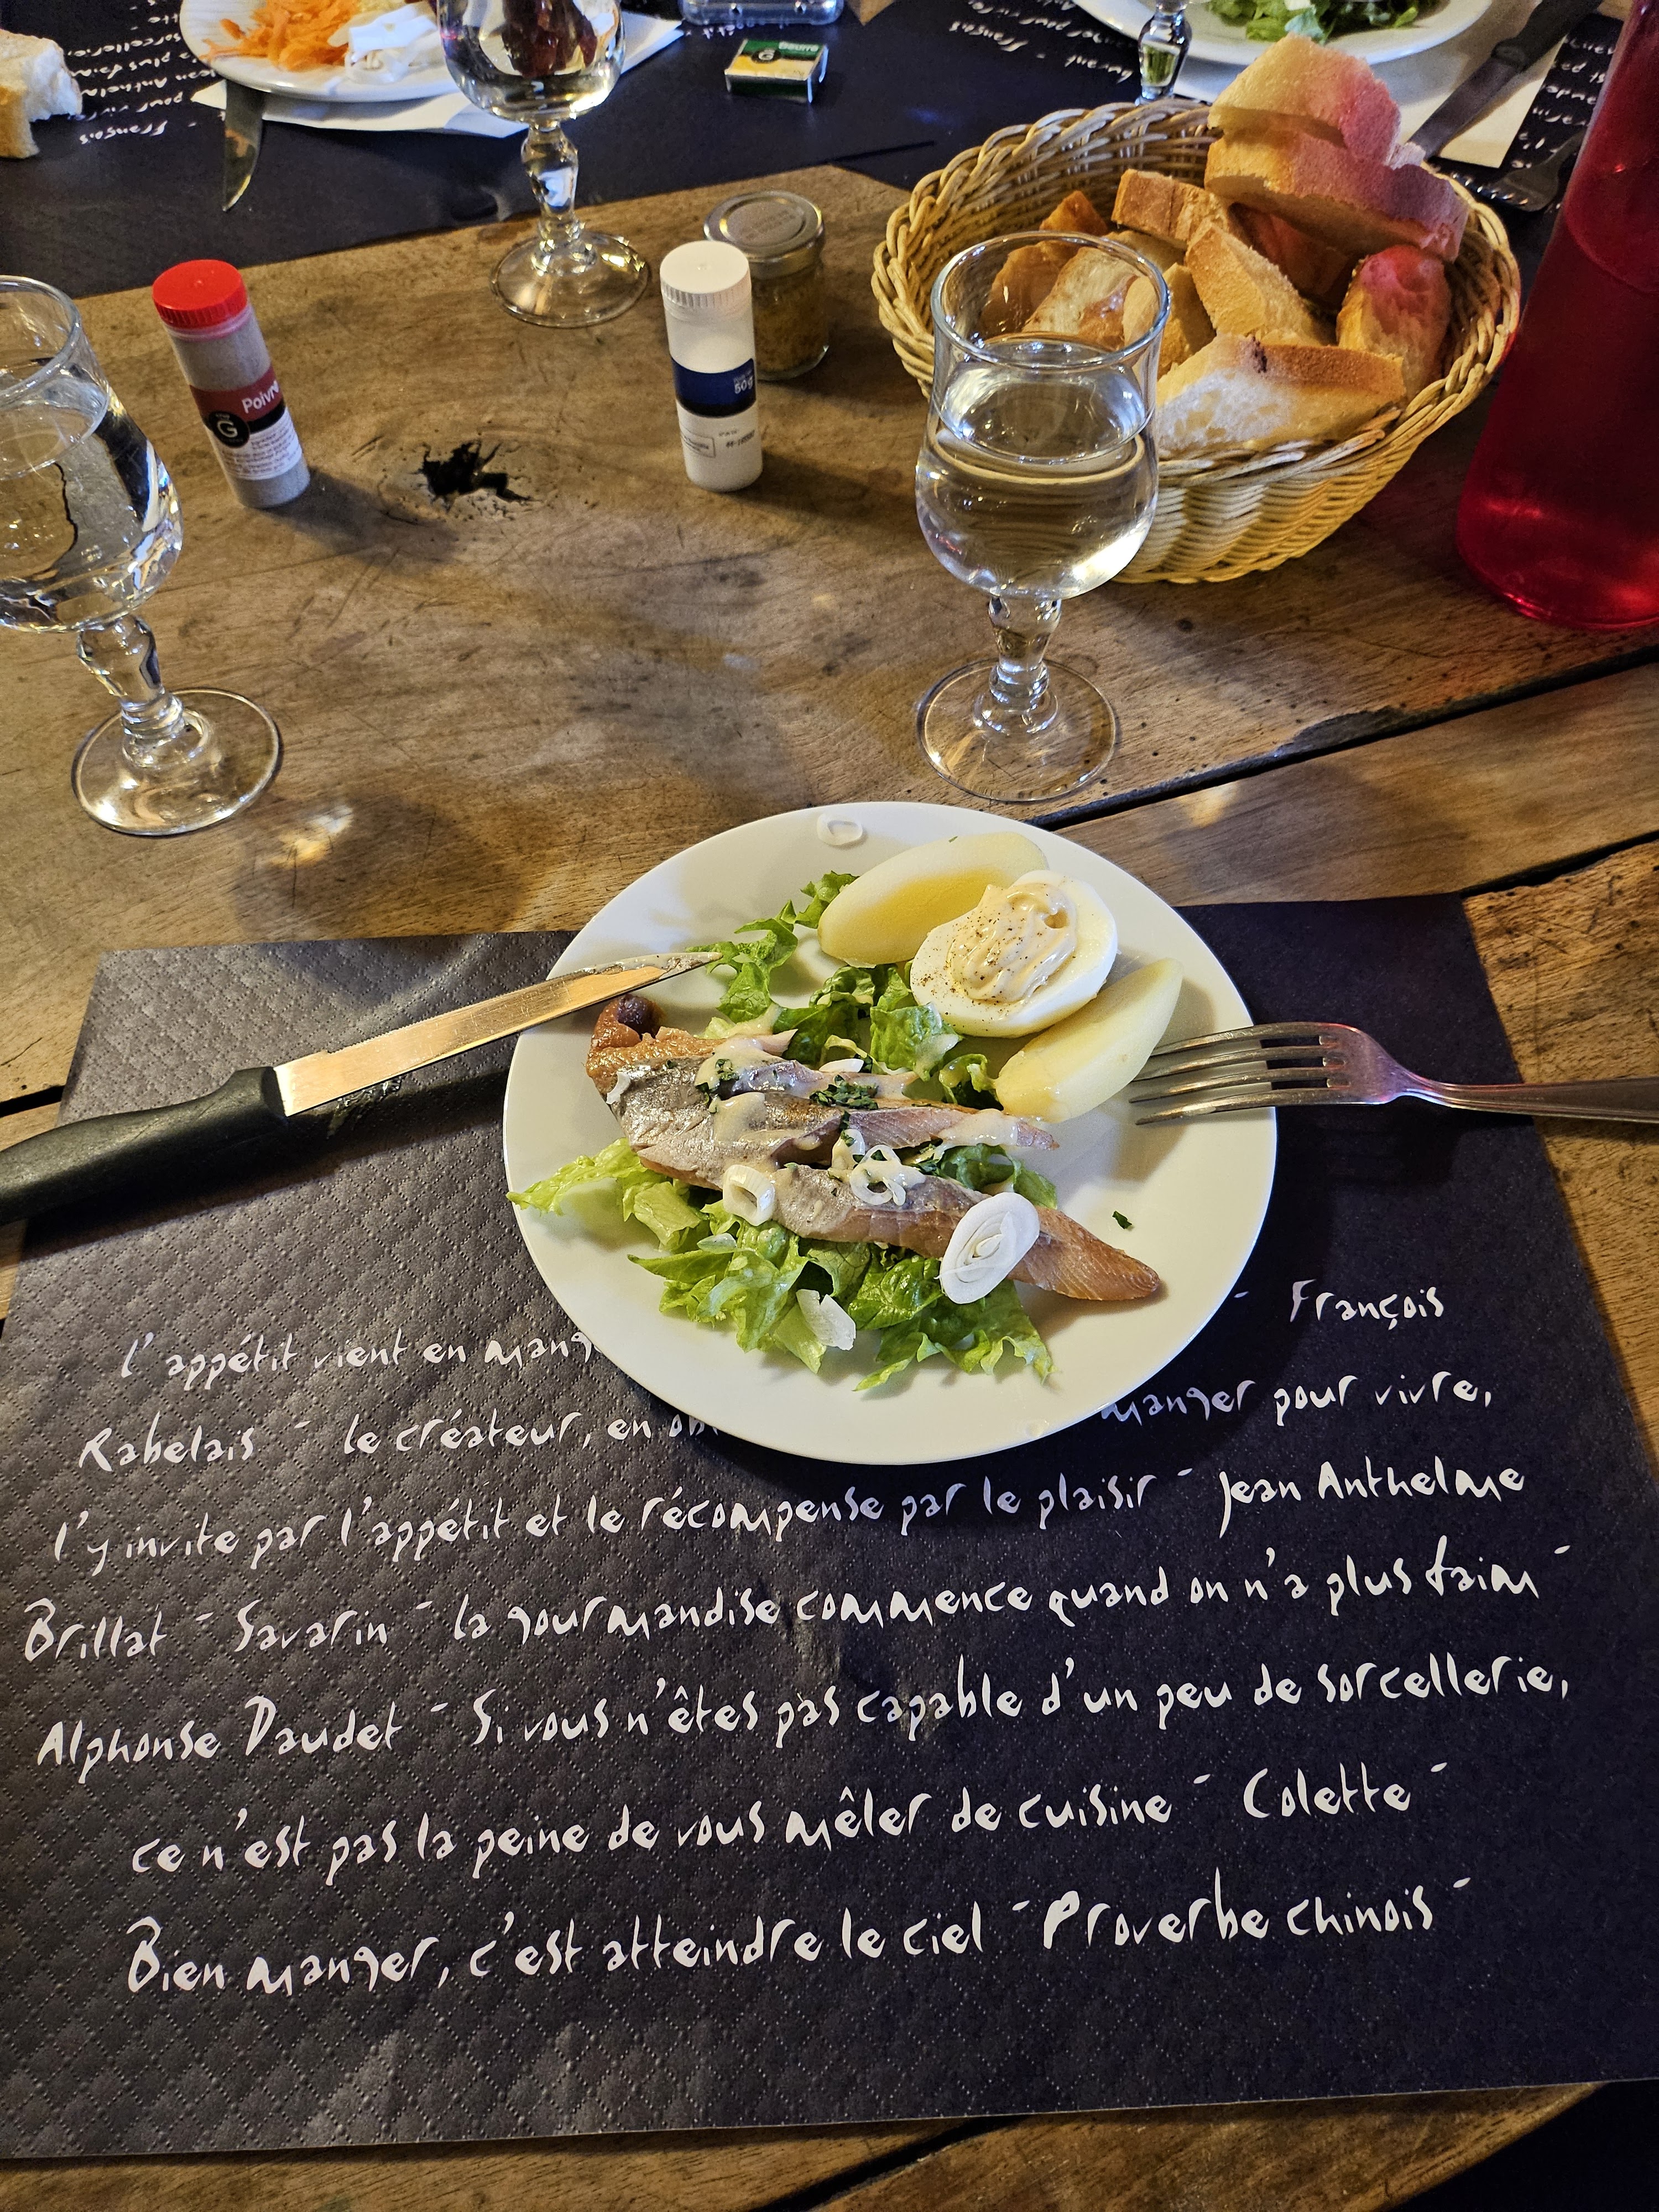 François
pour rir
Jean Anthelm
plus faim
sorcellerie
Beurre
François
Poivre
G
50g
l'appétit vient en mang - François
Rabelais - le créateur, en ob manger pour vivre,
l'y invite par l'appétit et le récompense par le plaisir - Jean Anthelme
Brillat - Savarin - la gourmandise commence quand on n'a plus faim -
Alphonse Daudet - Si vous n'êtes pas capable d'un peu de sorcellerie,
ce n'est pas la peine de vous mêler de cuisine - Colette -
Bien manger, c'est atteindre le ciel - Proverbe chinois -